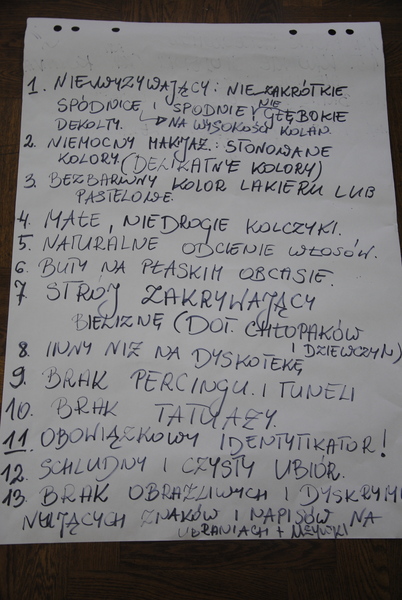 1. NIEWYZYWAJĄCY: NIE ZAKRÓTKIE
SPÓDNICE I SPODNIE, NIE GŁĘBOKIE
DEKOLTY. ↳ NA WYSOKOŚĆ KOLAN.
2. NIEMOCNY MAKIJAŻ: STONOWANE
KOLORY (DELIKATNE KOLORY)
3. BEZBARWNY KOLOR LAKIERU LUB
PASTELOWE.
4. MAŁE, NIEDROGIE KOLCZYKI.
5. NATURALNE ODCIENIE WŁOSÓW.
6. BUTY NA PŁASKIM OBCASIE.
7. STRÓJ ZAKRYWAJĄCY
BIELIZNĘ (DOT. CHŁOPAKÓW
I DZIEWCZYN)
8. INNY NIŻ NA DYSKOTEKĘ
9. BRAK PERCINGU I TUNELI
10. BRAK TATUAŻY.
11. OBOWIĄZKOWY IDENTYTIKATOR!
12. SCHLUDNY I CZYSTY UBIÓR.
13. BRAK OBRAŹLIWYCH I DYSKRYMI
NUJĄCYCH ZNAKÓW I NAPISÓW NA
UBRANIACH +